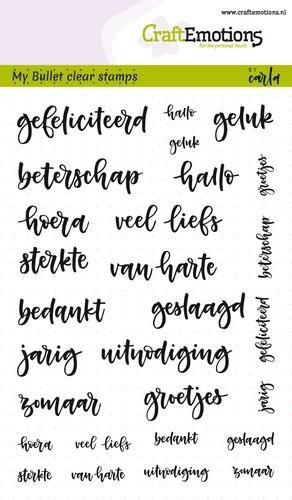 www.craftemotions.nl
CraftEmotions
for the personal touch
My Bullet clear stamps
BY carla
gefeliciteerd hallo geluk
geluk
beterschap hallo groetjes
hoera veel liefs
sterkte van harte beterschap
bedankt geslaagd
jarig uitnodiging gefeliciteerd
zomaar groetjes jarig
hoera veel liefs bedankt geslaagd
sterkte van harte uitnodiging zomaar